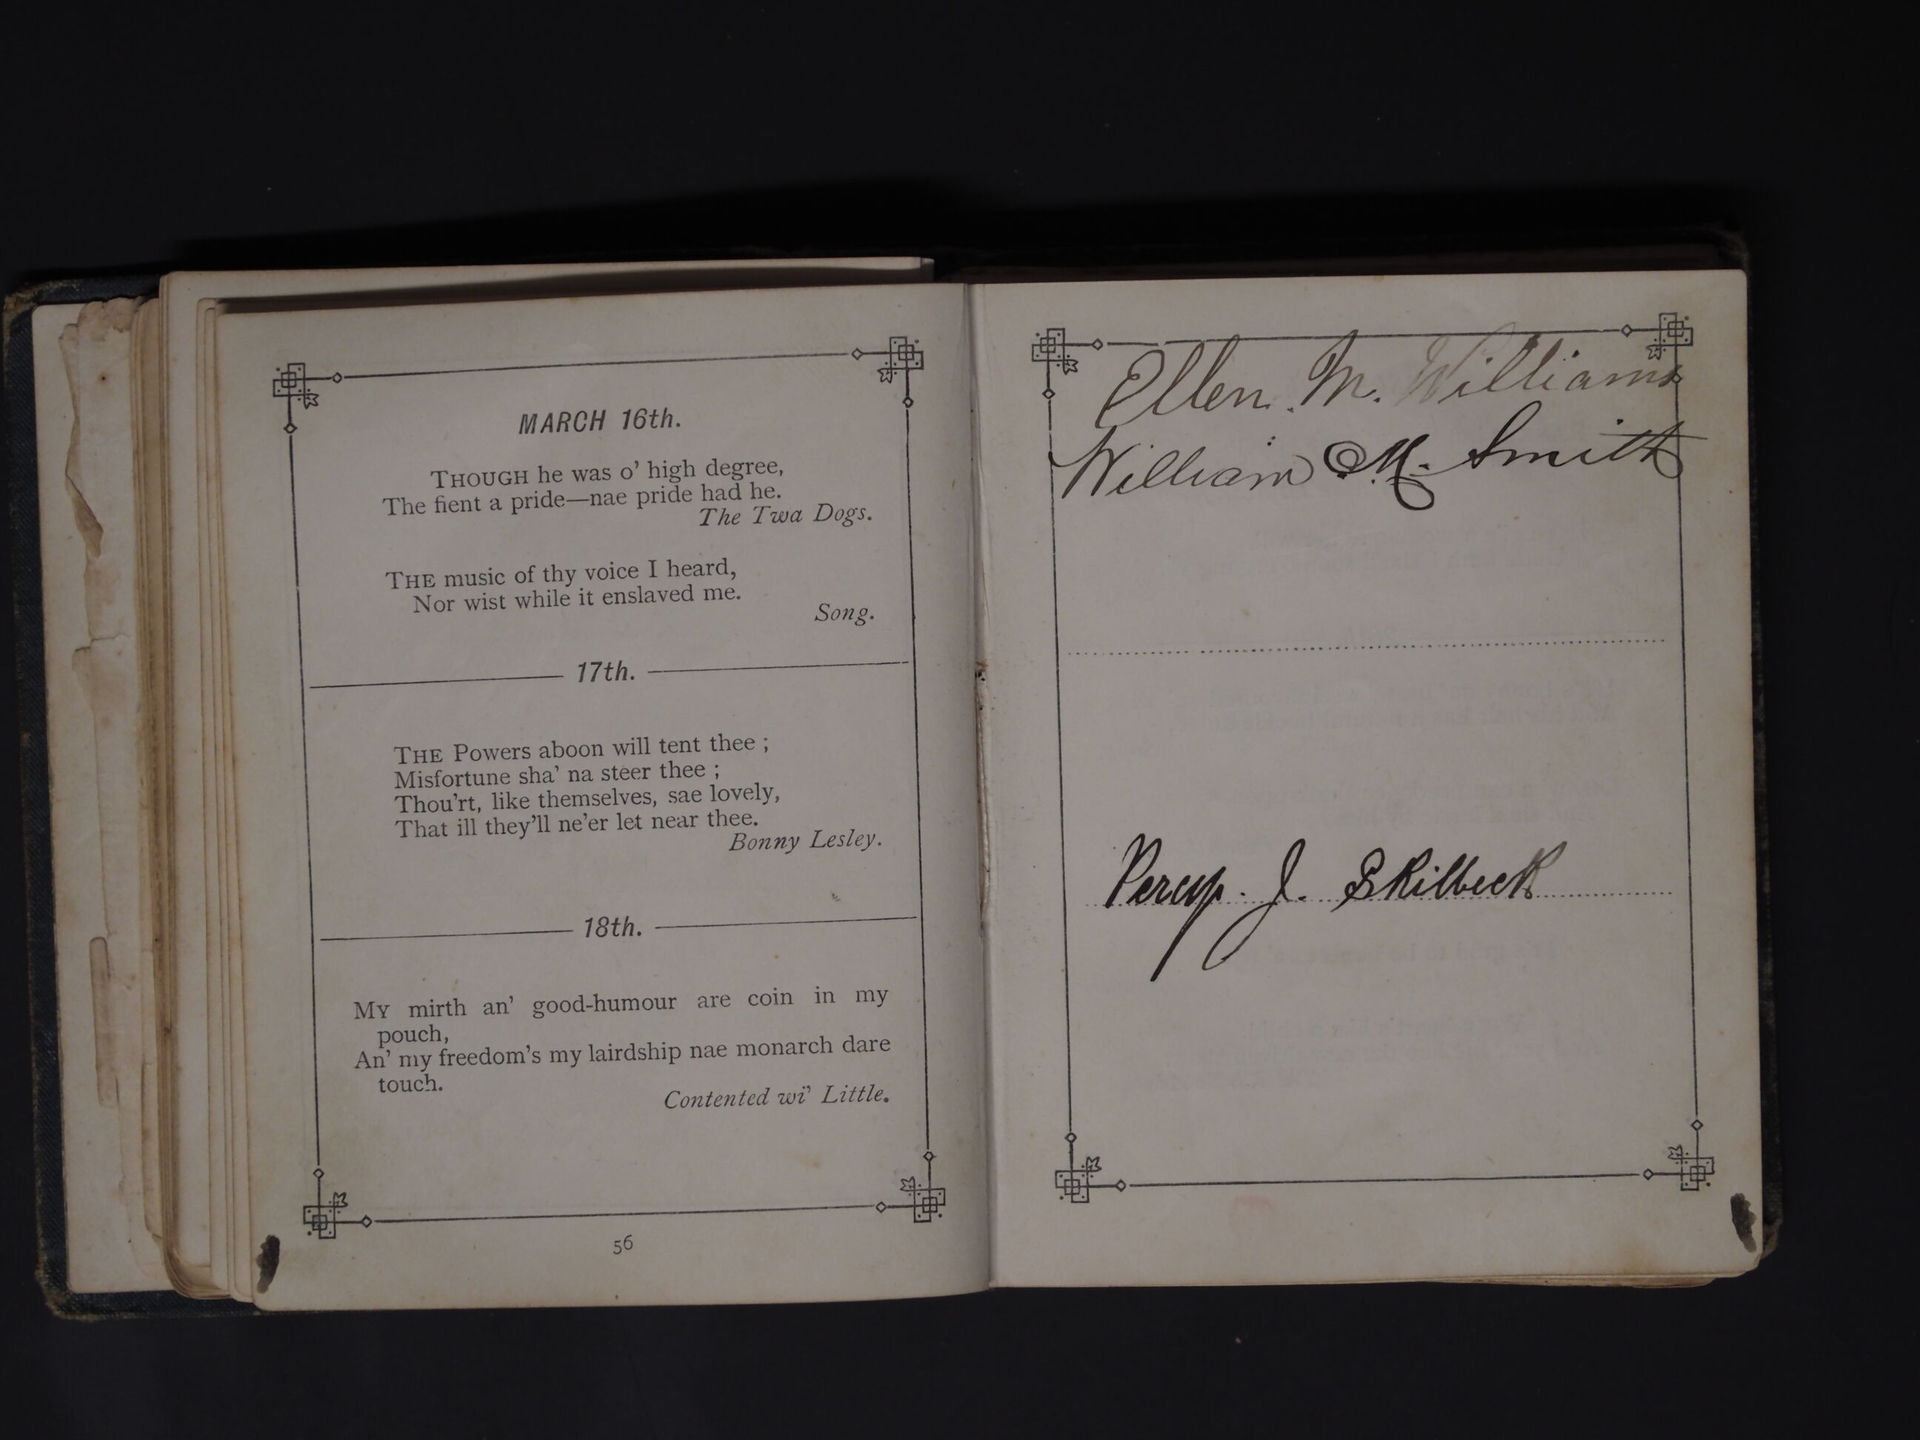 MARCH 16th.
THOUGH he was o' high degree,
The fient a pride—nae pride had he.
The Twa Dogs.
THE music of thy voice I heard,
Nor wist while it enslaved me.
Song.
17th.
THE Powers aboon will tent thee ;
Misfortune sha' na steer thee ;
Thou'rt, like themselves, sae lovely,
That ill they'll ne'er let near thee.
Bonny Lesley.
18th.
MY mirth an' good-humour are coin in my
pouch,
An' my freedom's my lairdship nae monarch dare
touch.
Contented wi' Little.
56
Ellen. M. Williams
William M. Smith
Percy. J. Skilbeck